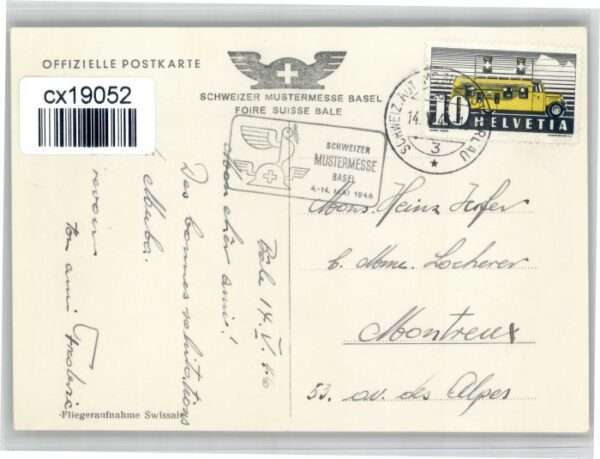 OFFIZIELLE POSTKARTE
cx19052
SCHWEIZER MUSTERMESSE BASEL
FOIRE SUISSE BALE
SCHWEIZER
MUSTERMESSE
BASEL
4.-14. MAI 1946
SCHWEIZ. AUT
14. V. 46
3
10
HELVETIA
Bâle 14. V. 46
Mon cher ami!
Des bonnes salutations
Muba.
revoir
ton ami Frédéric
Mons. Heinz Hofer
b. Mme. Locherer
Montreux
53. av. des Alpes
-Fliegeraufnahme Swissair